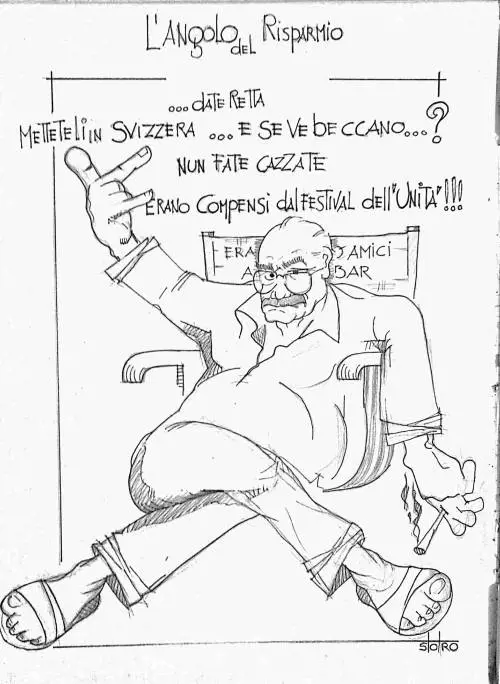 L'ANgOLO DEL RISPARMIO
...DATE RETTA
METTETELI IN SVIZZERA ... E SE VE BECCANO...?
NUN FATE CAZZATE
ERANO COMPENSI DAL FESTIVAL dell'"UNITÀ"!!!
ERA S AMICI
A BAR
STORO